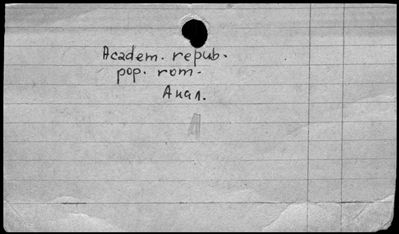 Academ. repub.
pop. rom.
Анал.
А